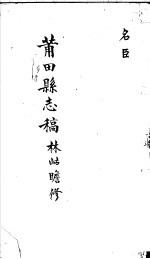 名臣
莆田縣志稿
林岵瞻修